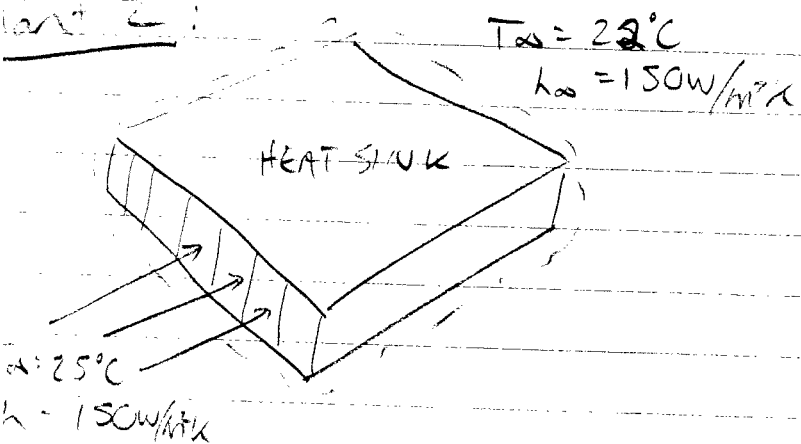 2:
T∞ = 22°C
h∞ = 150W/m²K
HEAT SINK
∞: 25°C
h - 150W/m²K